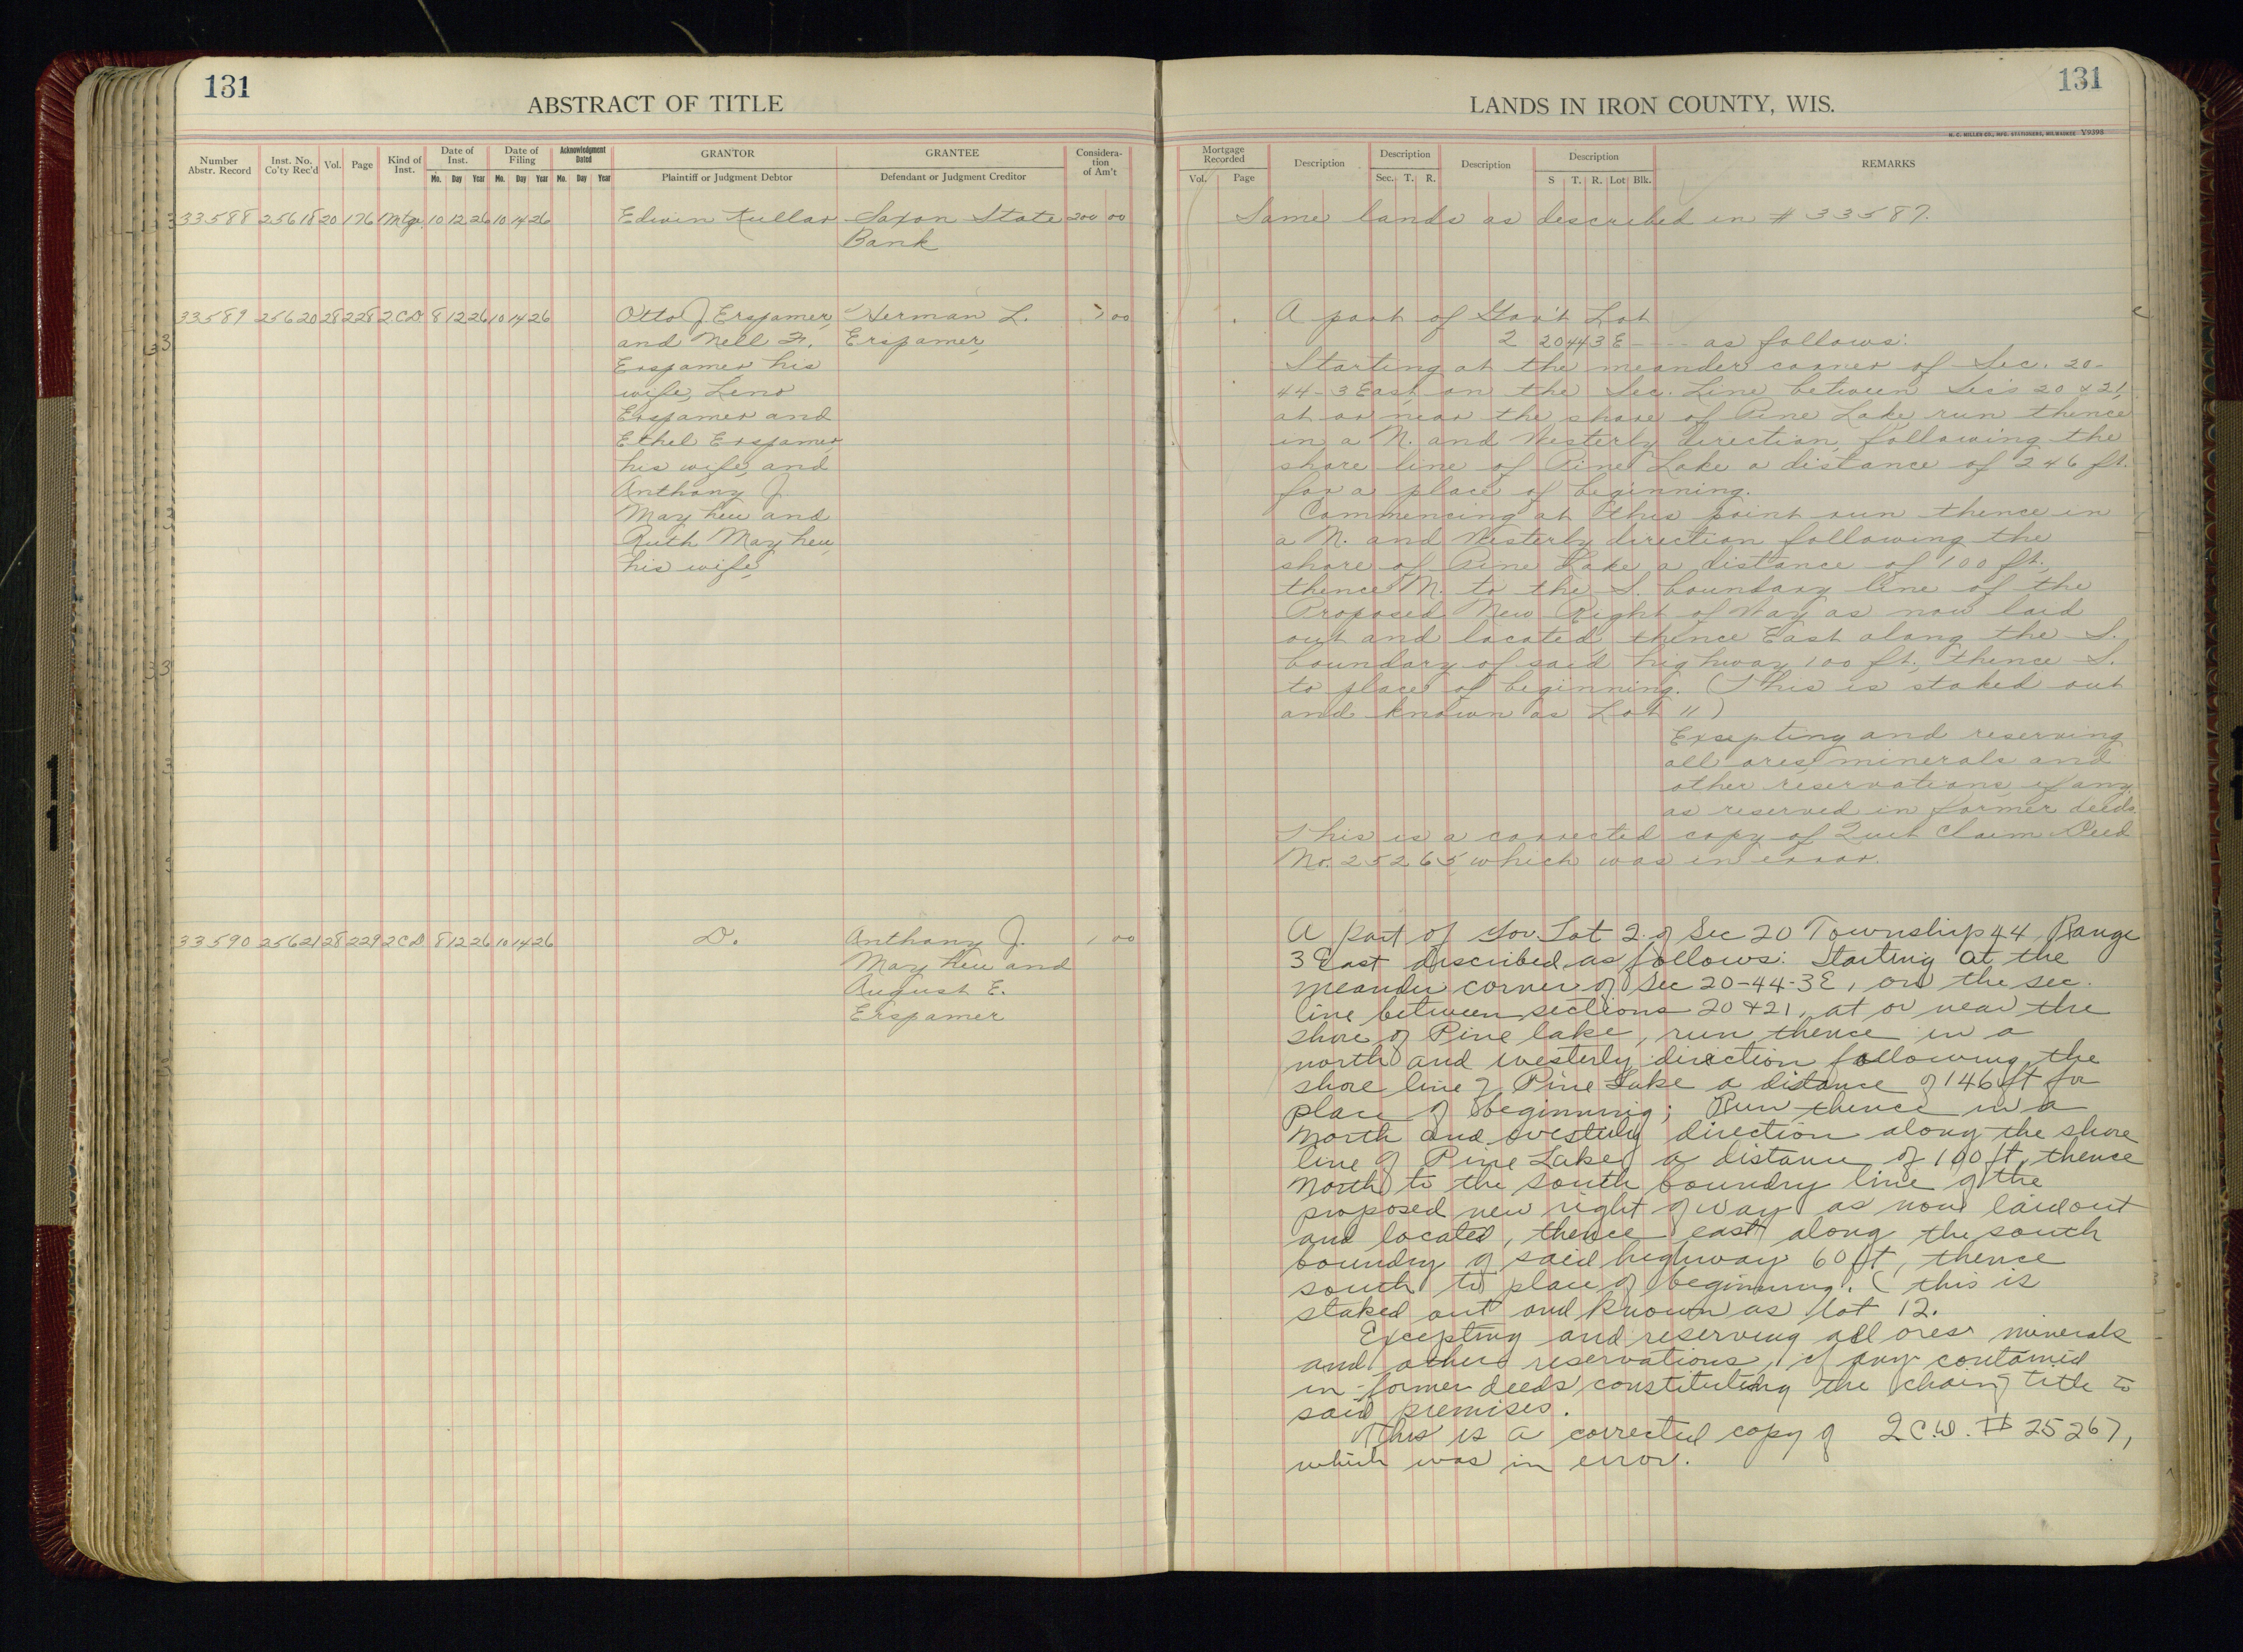 131
ABSTRACT OF TITLE
Number Abstr. Record
Inst. No. Co'ty Rec'd
Vol.
Page
Kind of Inst.
Date of Inst.
Mo. Day Year
Date of Filing
Mo. Day Year
Acknowledgment Dated
Mo. Day Year
GRANTOR
Plaintiff or Judgment Debtor
GRANTEE
Defendant or Judgment Creditor
Considera-tion of Am't
33588 25618 20 176 Mtge. 10 12 26 10 14 26 Edwin Kullar Saxon State 200 00
Bank
33589 25620 28 228 2CD 8 12 26 10 14 26 Otto J Erspamer, Herman L. 00
and Nell F. Erspamer,
Erspamer his
wife, Leno
Erspamer and
Ethel Erspamer,
his wife, and
Anthony J.
Mayhew and
Ruth Mayhew,
his wife,
33590 25621 28 229 2CD 8 12 26 10 14 26 D. Anthony J. 1 00
Mayhew and
August E.
Erspamer
131
LANDS IN IRON COUNTY, WIS.
H. C. MILLER CO., MFG. STATIONERS, MILWAUKEE Y9398
Mortgage Recorded
Vol. Page
Description
Description
Sec. T. R.
Description
Description
S T. R. Lot Blk.
REMARKS
Same lands as described in # 33587.
A part of Gov't Lot
2 20 44 3E - - - as follows:
Starting at the meander corner of Sec. 20-
44-3 East, on the Sec. Line between Sec's 20 & 21,
at or near the shore of Pine Lake, run thence
in a N. and Westerly direction, following the
shore line of Pine Lake a distance of 246 ft.
for a place of beginning.
Commencing at this point run thence in
a N. and Westerly direction following the
shore of Pine Lake, a distance of 100 ft,
thence N. to the S. boundary line of the
Proposed New Right of Way as now laid
out and located, thence East along the S.
boundary of said highway 100 ft, thence S.
to place of beginning. (This is staked out
and known as Lot 11)
Excepting and reserving
all ores, minerals and
other reservations, if any,
as reserved in former deeds.
This is a corrected copy of Quit Claim Deed
No. 25265, which was in error.
A part of Gov. Lot 2 of Sec 20 Township 44, Range
3 East described as follows: Starting at the
meander corner of Sec 20-44-3E, on the sec.
line between sections 20 & 21, at or near the
shore of Pine lake, run thence in a
north and westerly direction following the
shore line of Pine Lake a distance of 146 ft for
place of beginning; Run thence in a
North and westerly direction along the shore
line of Pine Lake a distance of 100 ft, thence
North to the south boundry line of the
proposed new right of way as now laid out
and located, thence east along the south
boundry of said highway 60 ft, thence
south to place of beginning. (this is
staked out and known as lot 12.
Excepting and reserving all ores minerals
and other reservations, if any contained
in former deeds constituting the chain of title to
said premises.
This is a corrected copy of Q.C.D. # 25267,
which was in error.